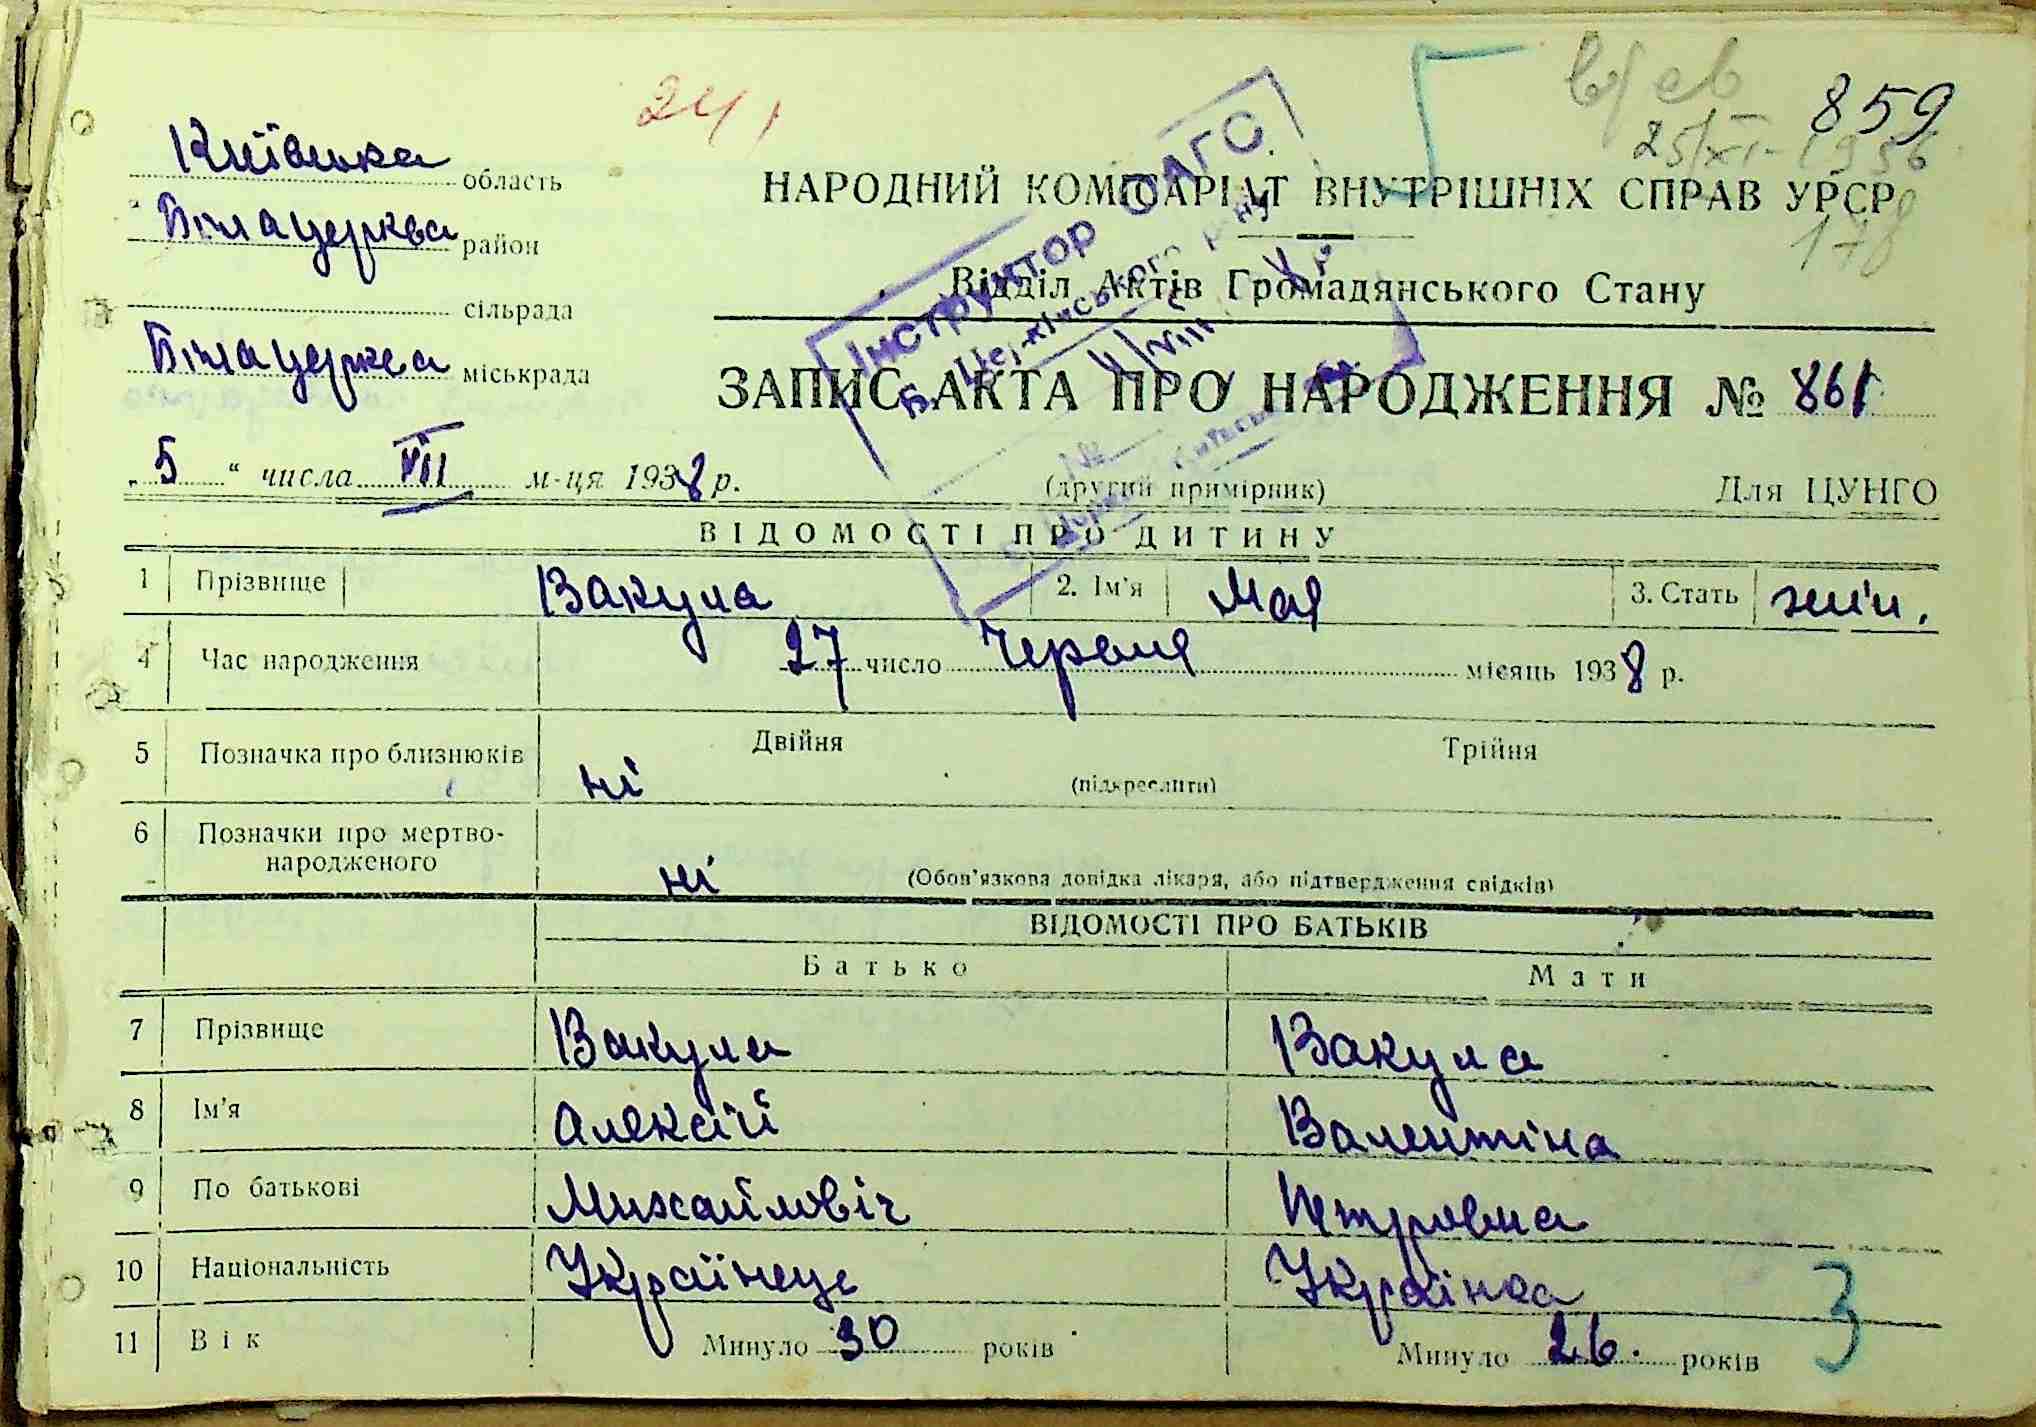 241
859
25/XI-1956
178
5
Київська область
Білацерква район
сільрада
Білацерква міськрада
НАРОДНИЙ КОМІСАРІАТ ВНУТРІШНІХ СПРАВ УРСР
Відділ Актів Громадянського Стану
Інструктор ОАГС
ЗАПИС АКТА ПРО НАРОДЖЕННЯ № 861
„5“ числа VII м-ця 1938 р.
(другий примірник)
Для ЦУНГО
ВІДОМОСТІ ПРО ДИТИНУ
1 Прізвище Вакула 2. Ім'я Мая 3. Стать жін.
4 Час народження 27 число Червня місяць 1938 р.
5 Позначка про близнюків ні Двійня Трійня
(підкреслити)
6 Позначки про мертво-
народженого ні (Обов'язкова довідка лікаря, або підтвердження свідків)
ВІДОМОСТІ ПРО БАТЬКІВ
Батько Мати
7 Прізвище Вакула Вакула
8 Ім'я Алексій Валентіна
9 По батькові Михайловіч Петровна
10 Національність Українець Українка
11 Вік Минуло 30 років Минуло 26. років
3